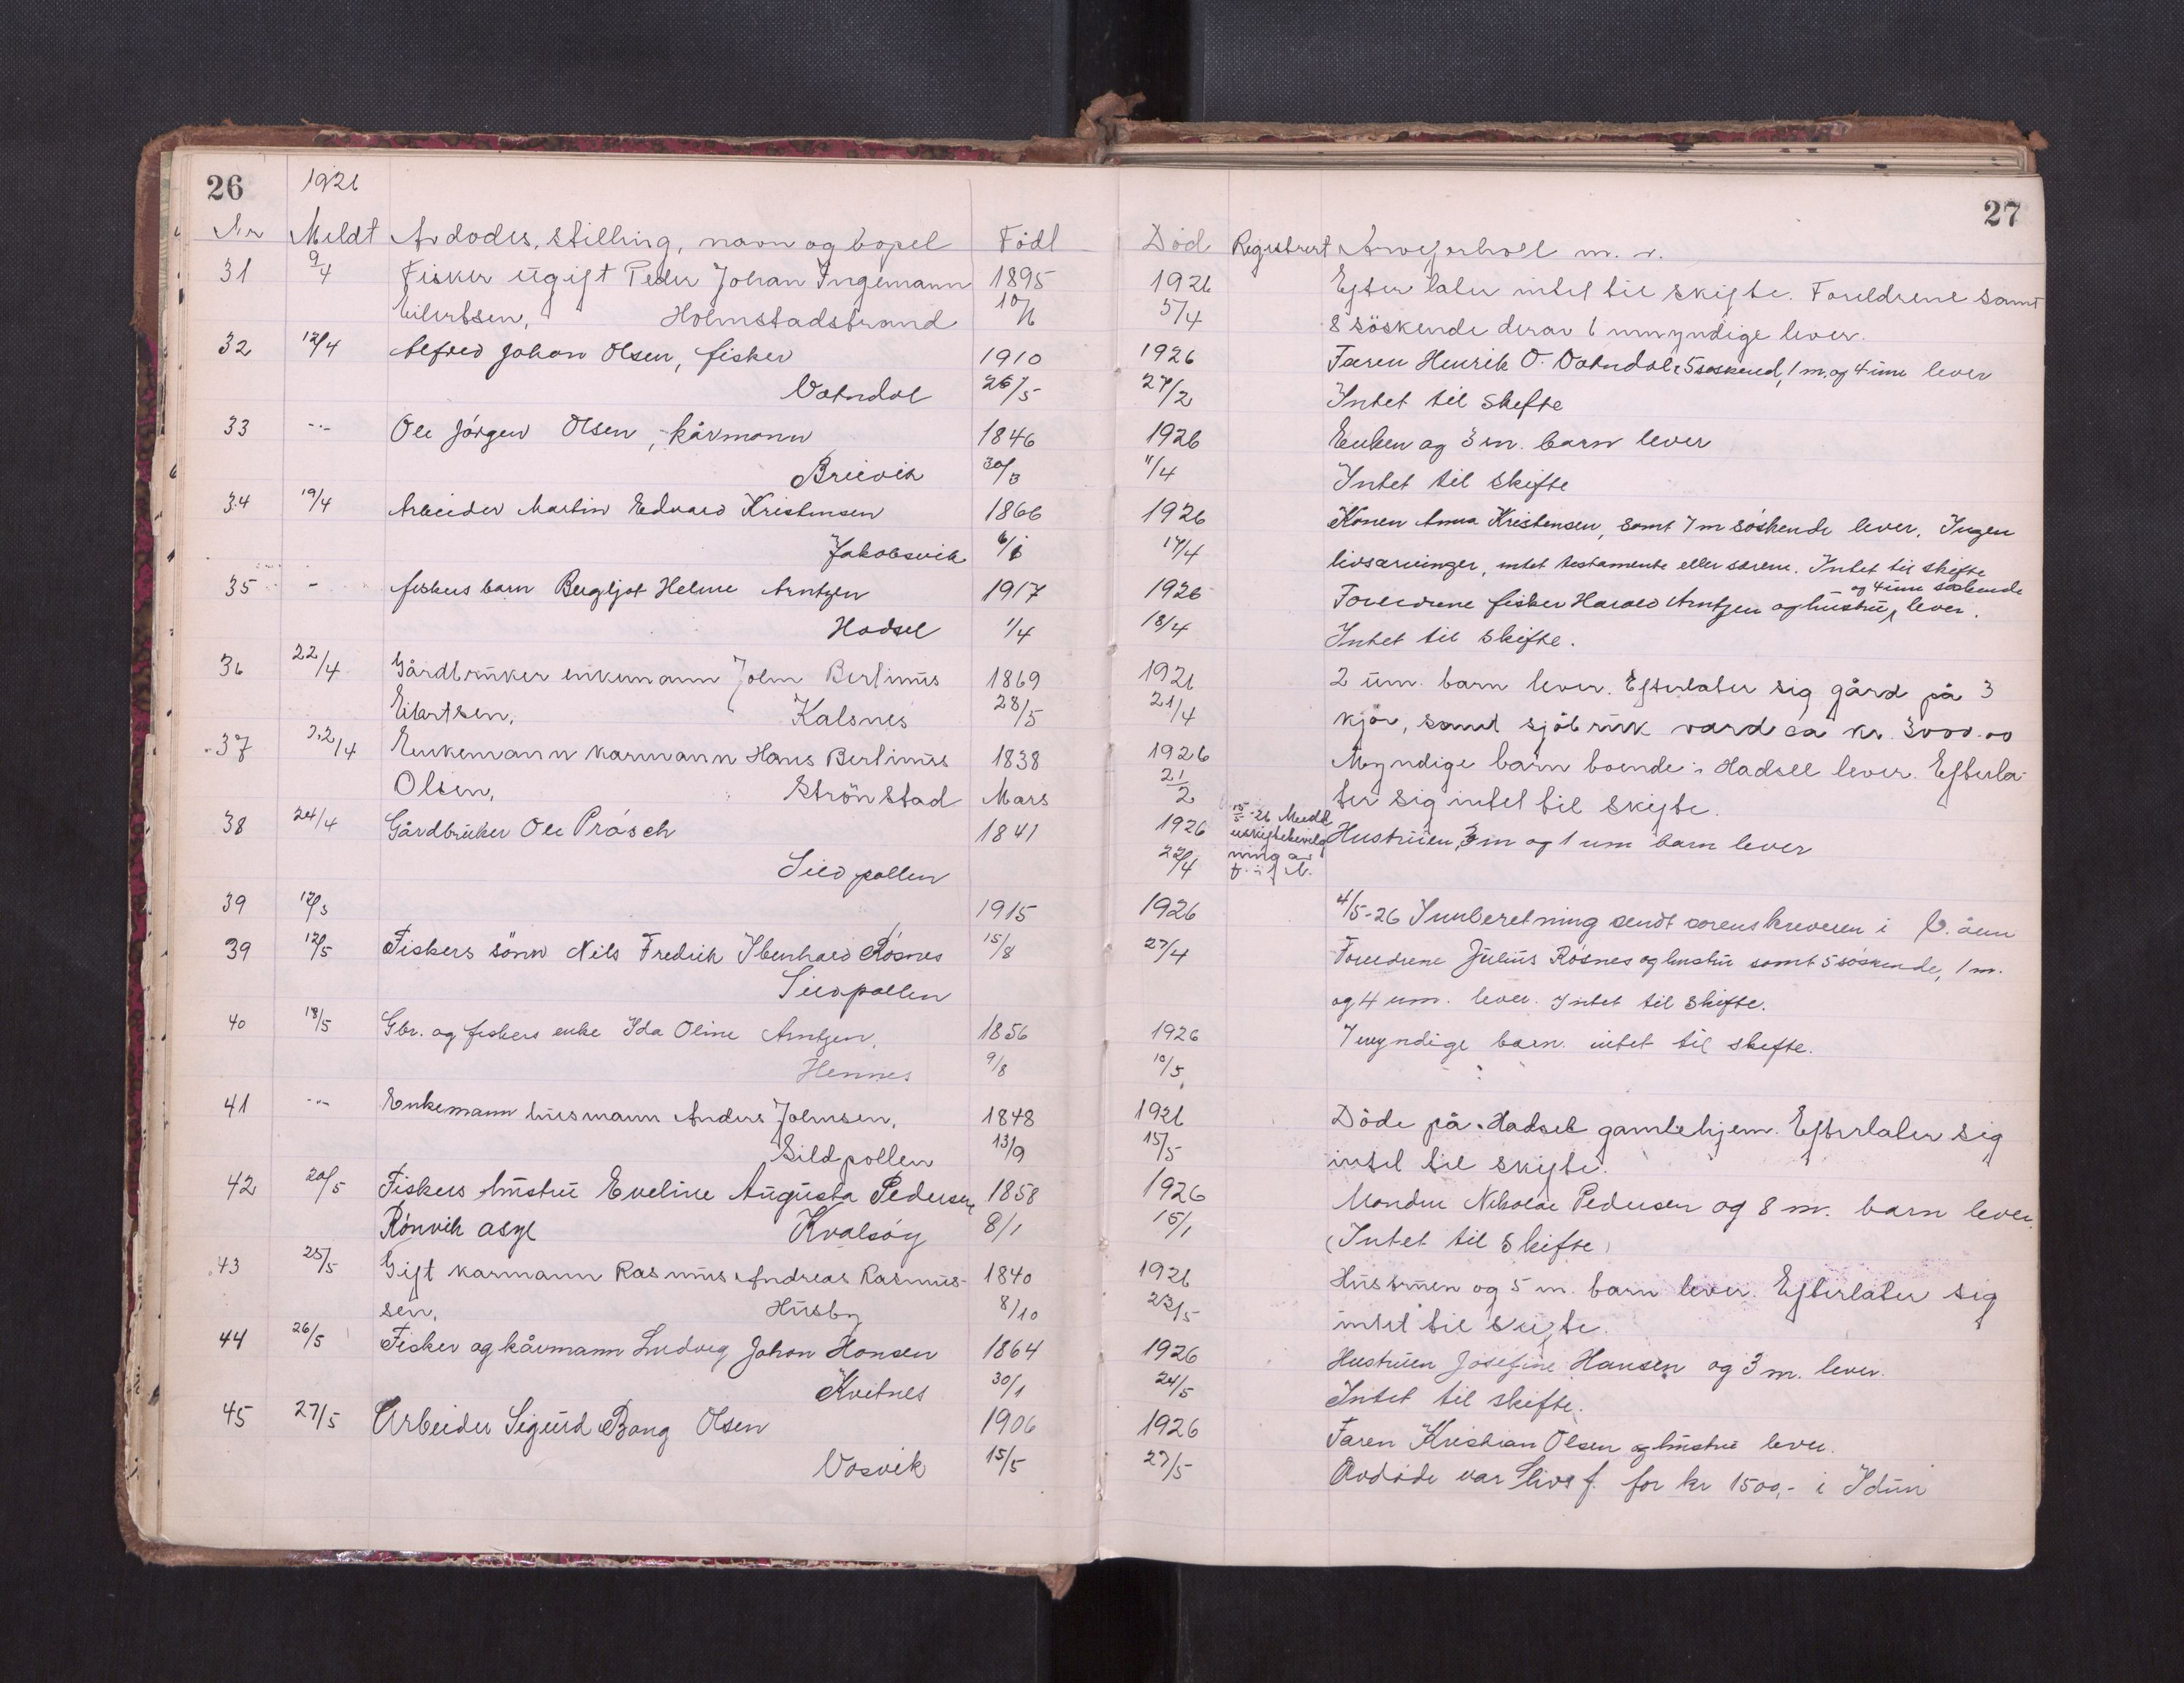 26 1926
Nr Meldt Avdødes, stilling, navn og bopel Født
31 9/4 Fisker ugift Peder Johan Ingemann 1895
Eilertsen, Holmstadstrand 10/6
32 12/4 Alfred Johan Olsen, fisker 1910
Vatndal 26/5
33 -"- Ole Jörgen Olsen, kårmann 1846
Breivik 30/3
34 19/4 Arbeider Martin Edvard Kristensen 1866
Jakobsvik
35 - fiskers barn Bergljot Helene Arntzen 1917
Hadsel 1/4
36 22/4 Gårdbruker enkemann John Bertinus 1869
Eilertsen, Kalsnes 28/5
37 22/4 Enkemann karmann Hans Bertinus 1838
Olsen, Strönstad Mars
38 24/4 Gårdbruker Ole Prösch 1841
Sildpollen
39 12/5 1915
39 12/5 Fiskers sönn Nils Fredrik Ibenhard Rösnes 15/8
Sildpollen
40 18/5 Gbr. og fiskers enke Ida Oline Arntzen, 1856
Hennes 9/8
41 -"- Enkemann husmann Anders Johnsen, 1848
Sildpollen 13/9
42 20/5 Fiskers hustru Eveline Augusta Pedersen 1858
Rönvik asyl Kvalsöy 8/1
43 25/5 Gift karmann Rasmus Andreas Rasmus- 1840
sen, Husby 8/10
44 26/5 Fisker og kårmann Ludvig Johan Hansen 1864
Kvitnes 30/1
45 27/5 Arbeider Sigurd Bang Olsen 1906
Vosvik 15/5
27
Död Registrert Arveforhold m. v.
1926 Efterlater intet til skifte. Foreldrene samt
5/4 8 söskende derav 6 umyndige lever.
1926 Faren Henrik O. Vatndal, 5 söskend, 1 m. og 4 um lever
27/2 Intet til skifte
1926 Enken og 3 m. barn lever
11/4 Intet til skifte
1926 Konen Anna Kristensen, samt 7 m söskende lever. Ingen
17/4 livsarvinger, intet testamente eller særeie. Intet til skifte
og 4 um söskende
1926 Foreldrene fisker Harald Arntzen og hustru, lever.
18/4 Intet til skifte.
1926 2 um. barn lever. Efterlater sig gård på 3
21/4 kjör, samt sjöbruk verd ca kr. 3000.00
1926 Myndige barn boende i Hadsel lever. Efterla-
21/2 ter sig intet til skifte.
15/5-26 Medd
1926 uskiftebevilg Hustruen, 3 m og 1 um barn lever
22/4 ning av
1926 4/5-26 Innberetning sendt sorenskriveren i
27/4 Foreldrene Julius Rösnes og hustru samt 5 söskende, 1 m.
og 4 um. lever. Intet til skifte.
1926 7 myndige barn. intet til skifte.
10/5
1926 Döde på Hadsel gamlehjem. Efterlater sig
15/5 intet til skifte.
1926 Manden Nikolai Pedersen og 8 m. barn lever.
15/1 (Intet til skifte)
1926 Hustruen og 5 m. barn lever. Efterlater sig
23/5 intet til skifte.
1926 Hustruen Josefine Hansen og 3 m. lever.
24/5 Intet til skifte.
1926 Faren Kristian Olsen og hustru lever.
27/5 Avdöde var livsf. for kr 1500,- i Idun